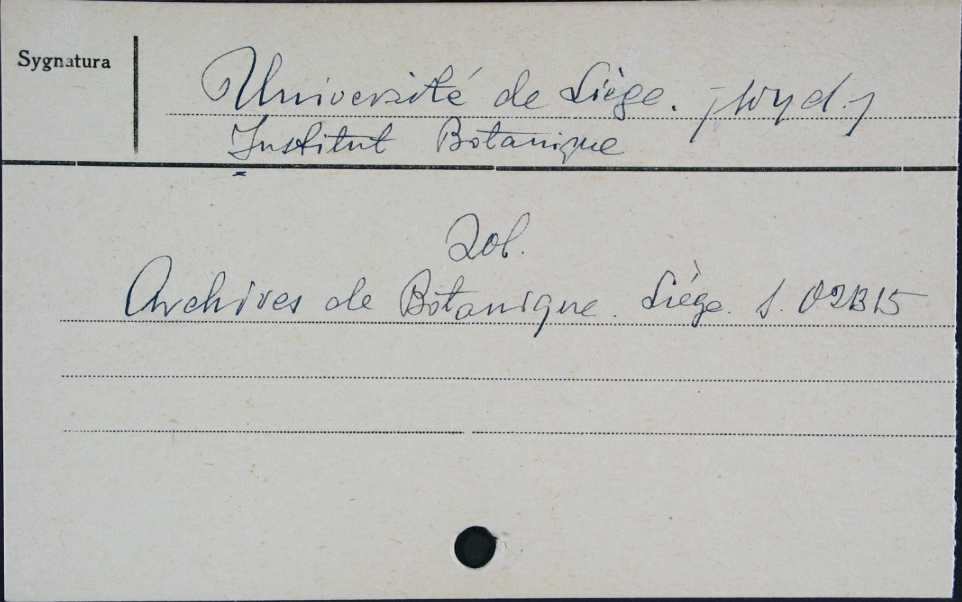 Sygnatura
Université de Liège. /wyd./
Institut Botanique
Zob.
Archives de Botanique. Liége. S. 02B15